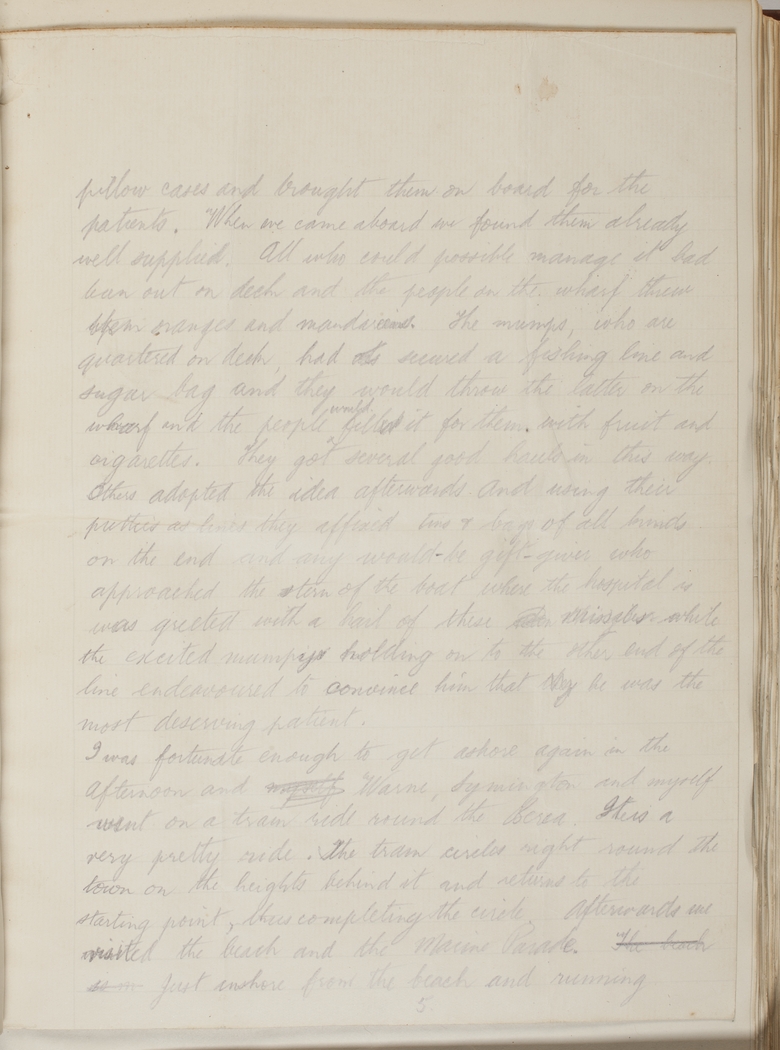 pillow cases and brought them on board for the
patients. When we came aboard we found them already
well supplied. All who could possible manage it had
been out on deck and the people on the wharf threw
them oranges and mandarins. The mumps, who are
quartered on deck, had secured a fishing line and
sugar bag and they would throw the latter on the
wharf and the people would fill it for them with fruit and
cigarettes. They got several good hauls in this way.
Others adopted the idea afterwards and using their
putties as lines they affixed tins & bags of all kinds
on the end and any would-be gift-giver who
approached the stern of the boat where the hospital is
was greeted with a hail of these missiles while
the excited mumpys holding on to the other end of the
line endeavoured to convince him that he was the
most deserving patient.
I was fortunate enough to get ashore again in the
afternoon and myself Warne, Symington and myself
went on a tram ride round the Berea. It is a
very pretty ride. The tram circles right round the
town on the heights behind it and returns to the
starting point, thus completing the circle. Afterwards we
visited the beach and the Marine Parade. The beach
is on Just inshore from the beach and running
5